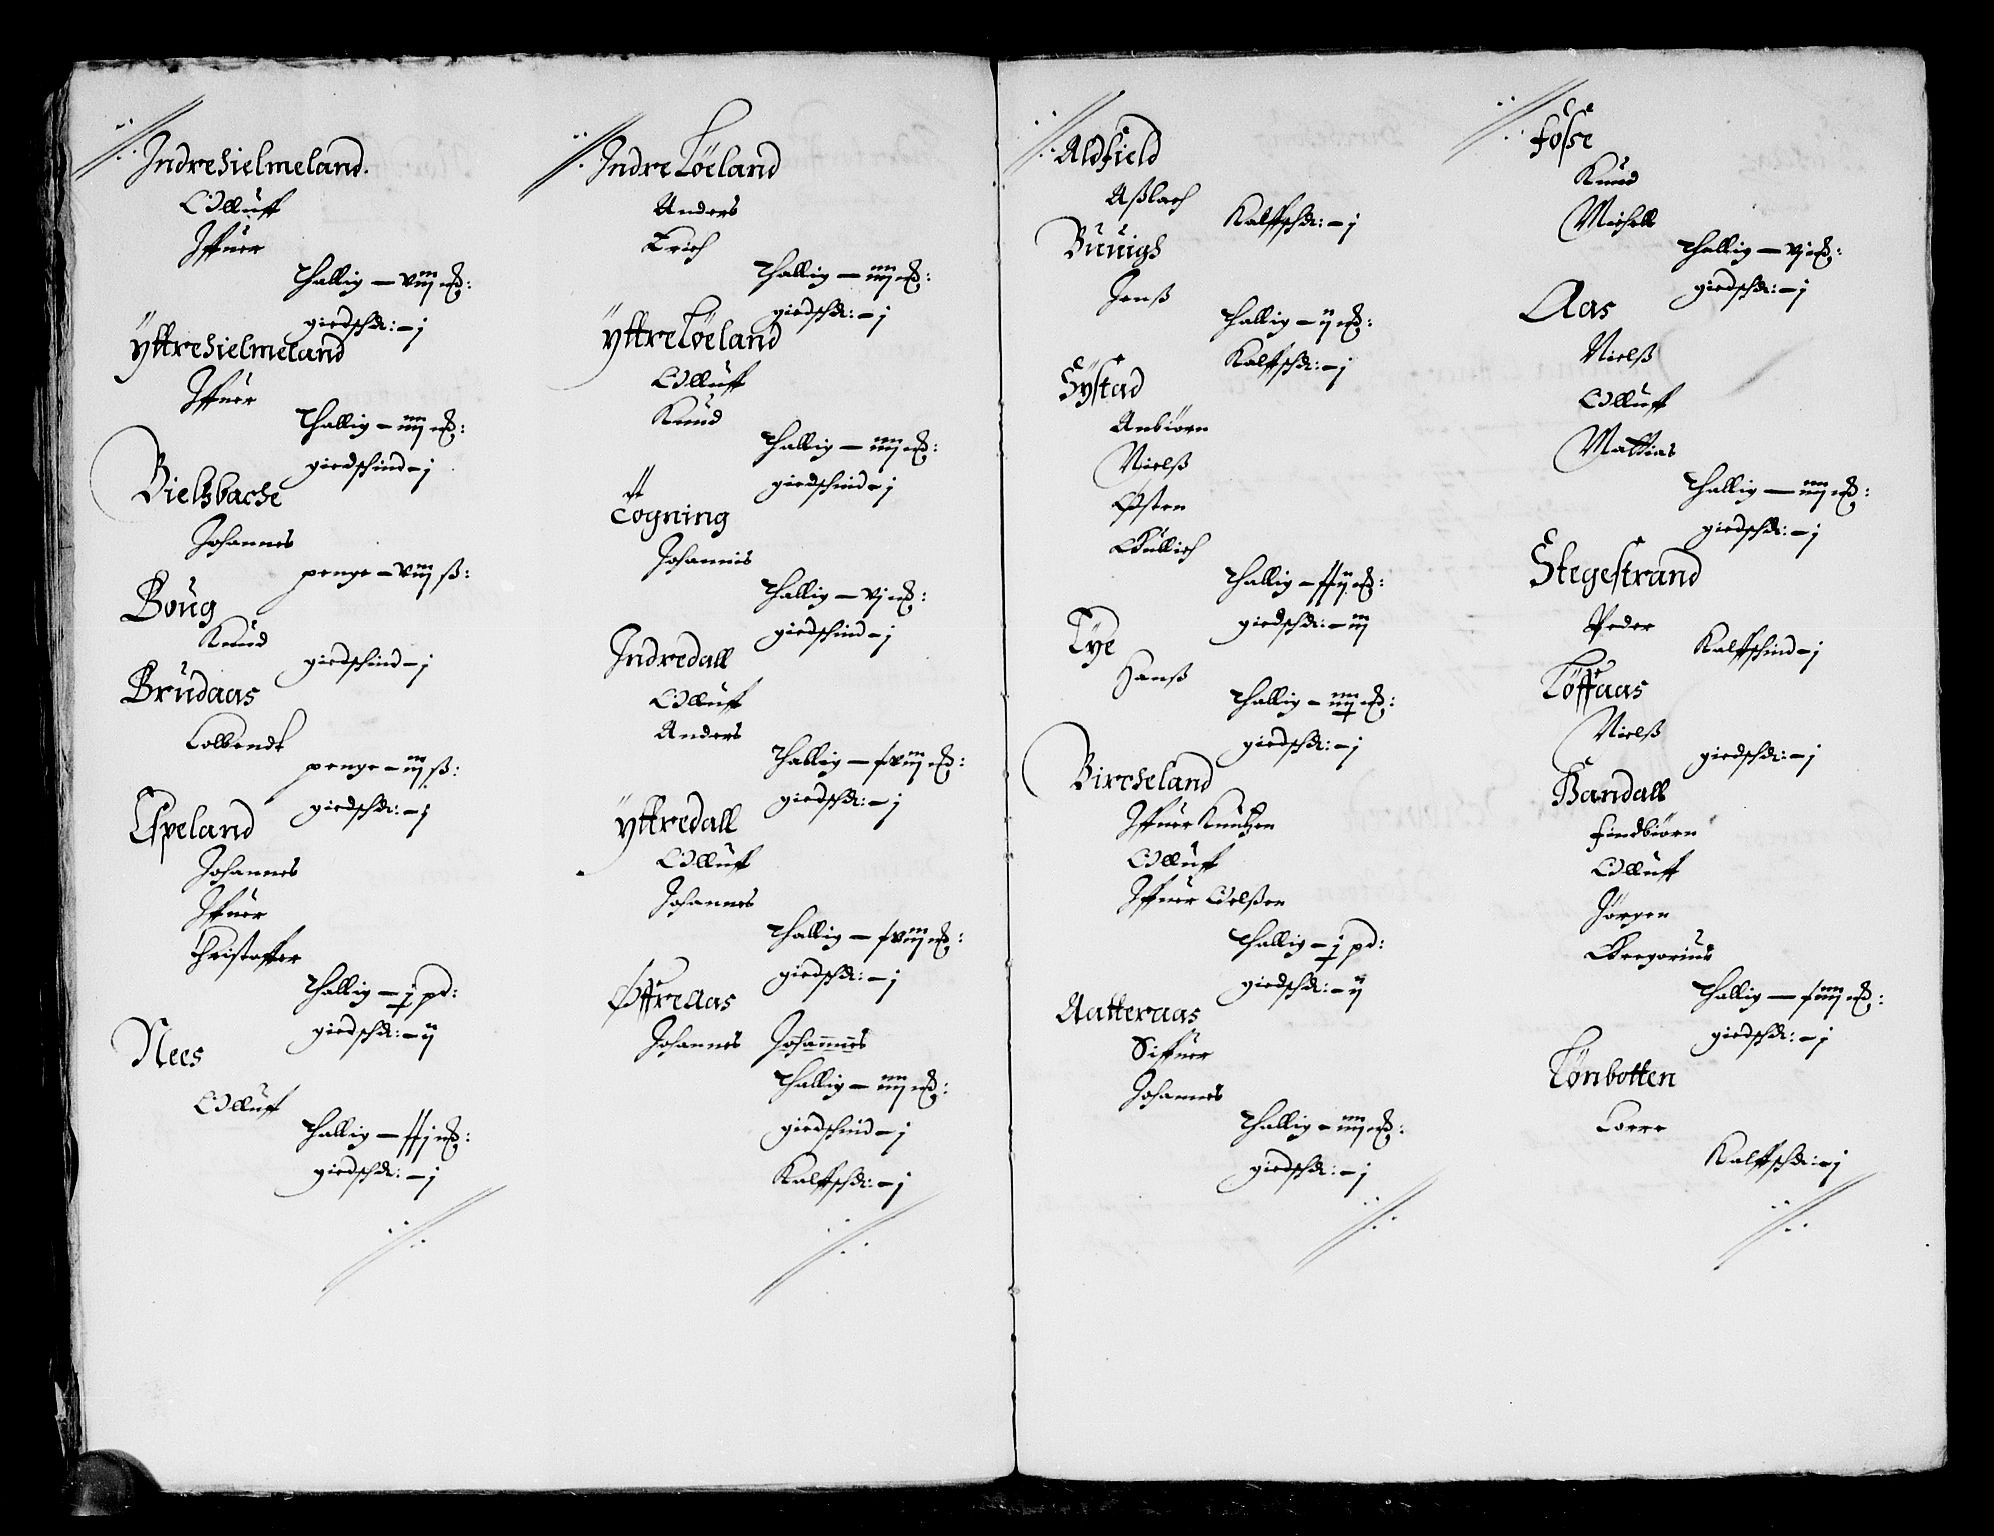 Indrehielmeland.
Olluff
Iffuer
Thallig – viij mß:
giedschr: – j
Yttrehielmeland
Iffuer
Thallig – iiij mß:
giedschind – j
Bielsbache
Johannes
penge – viij ß:
Boug
Knud
giedschind – j
Brudaas
Colbendt
penge – iiij ß:
giedschr: – j
Espeland
Johannes
Iffuer
Christoffer
Thallig – j pd:
giedschr: – ij
Nees
Olluff
Thallig – mß:
giedschr: – j
Indre Löeland
Anders
Erich
Thallig – iiij mß:
giedschr: – j
Yttre Löeland
Olluff
Knud
Thallig – iiij mß:
giedschind – j
Togning
Johannis
Thallig – vj mß:
giedschind – j
Indredall
Olluff
Anders
Thallig – mß:
giedschr: – j
Yttredall
Olluff
Johannes
Thallig – mß:
giedschr: – j
Øffreaas
Johannes Johannes
Thallig – iiij mß:
giedschind – j
Kalffschr: – j
Aldfield
Aßlach
Kalffschr: – j
Buuigh
Jenß
Thallig – ij mß:
Kalffschr: – j
Systad
Anbiörn
Nielß
Østen
Gullich
Thallig – mß:
giedschr: – iij
Tye
Hanß
Thallig – iiij mß:
giedschr: – j
Bircheland
Iffuer Knutzen
Olluff
Iffuer Olßen
Thallig – j pd:
giedschr: – ij
Aatteraas
Siffuer
Johannes
Thallig – iiij mß:
giedschr: – j
Fosse
Knud
Michell
Thallig – vj mß:
giedschr: – j
Aas
Nielß
Olluff
Mattias
Thallig – iiij mß:
giedschr: – j
Stegestrand
Peder
Kalffschind – j
Töffaas
Nielß
giedschr: – j
Handall
Findbiörn
Olluff
Jörgen
Gregorius
Thallig – mß:
giedschr: – j
Tönbotten
Torre
Kalffschr: – j